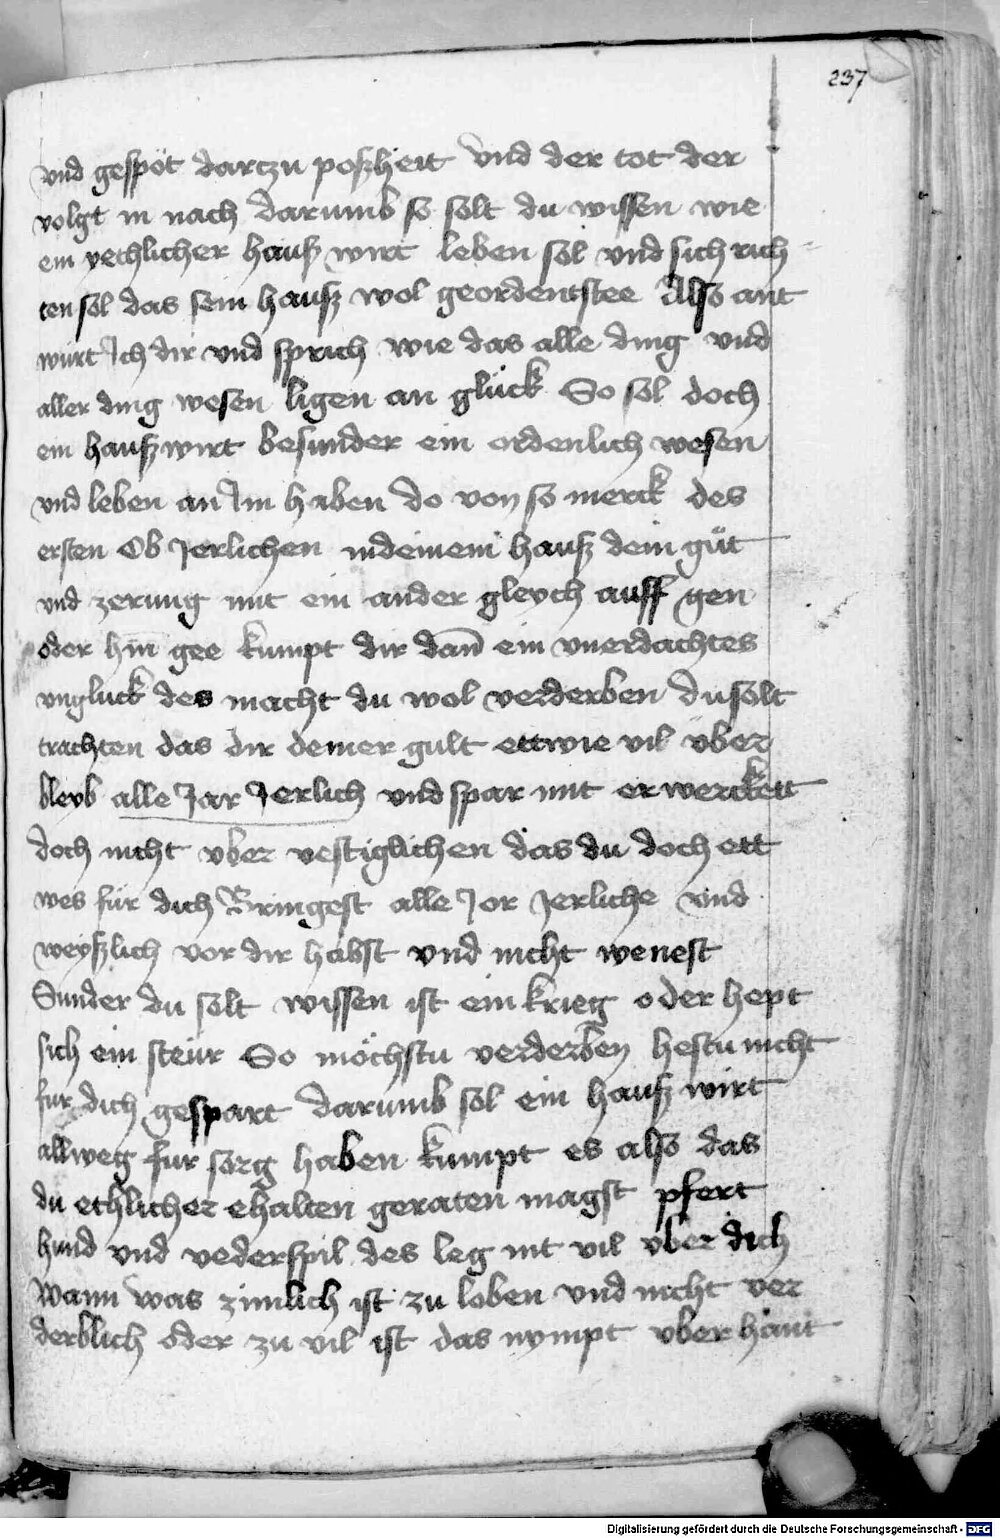 237
vnd gespöt dartzu poszheit vnd der tot der
volgt in nach darumb so solt du wissen wie
ein yethlicher hausz wirt leben sol vnd sich rich
ten sol das sein hausz wol geordent stee Also ant
würt Ich dir vnd sprich wie das alle ding vnd
aller ding wesen ligen an glück So sol doch
ein hauszwirt besunder ein ordenlich wesen
vnd leben an Im haben do von so merck des
ersten Ob Jerlichen in deinem hausz dein güt
vnd zerung mit ein ander gleych auff gen
oder hin gee kumpt dir dan̄ ein vnerdachtes
vngluck des macht du wol verderben du solt
trachten das dir deiner gult ettwie vil über
bleyb alle Jar Jerlich vnd spar mit er werckett
doch nicht vber vestiglichen das du doch ett
wes für dich Bringest alle Jor Jerliche vnd
weyszlich vor dir habst vnd nicht wenest
Sunder du solt wissen ist ein krieg oder hept
sich ein steur So möchstu verderben hestu nicht
fur dich gespart darumb sol ein hausz wirt
allweg fur sorg haben kumpt es also das
du ethlicher ehalten geraten magst pfert
hund vnd vederspil des leg nit vil vber dich
Wann was zimlich ist zu loben vnd nicht ver
derblich oder zu vil ist das nympt vber hant
Digitalisierung gefördert durch die Deutsche Forschungsgemeinschaft - DFG